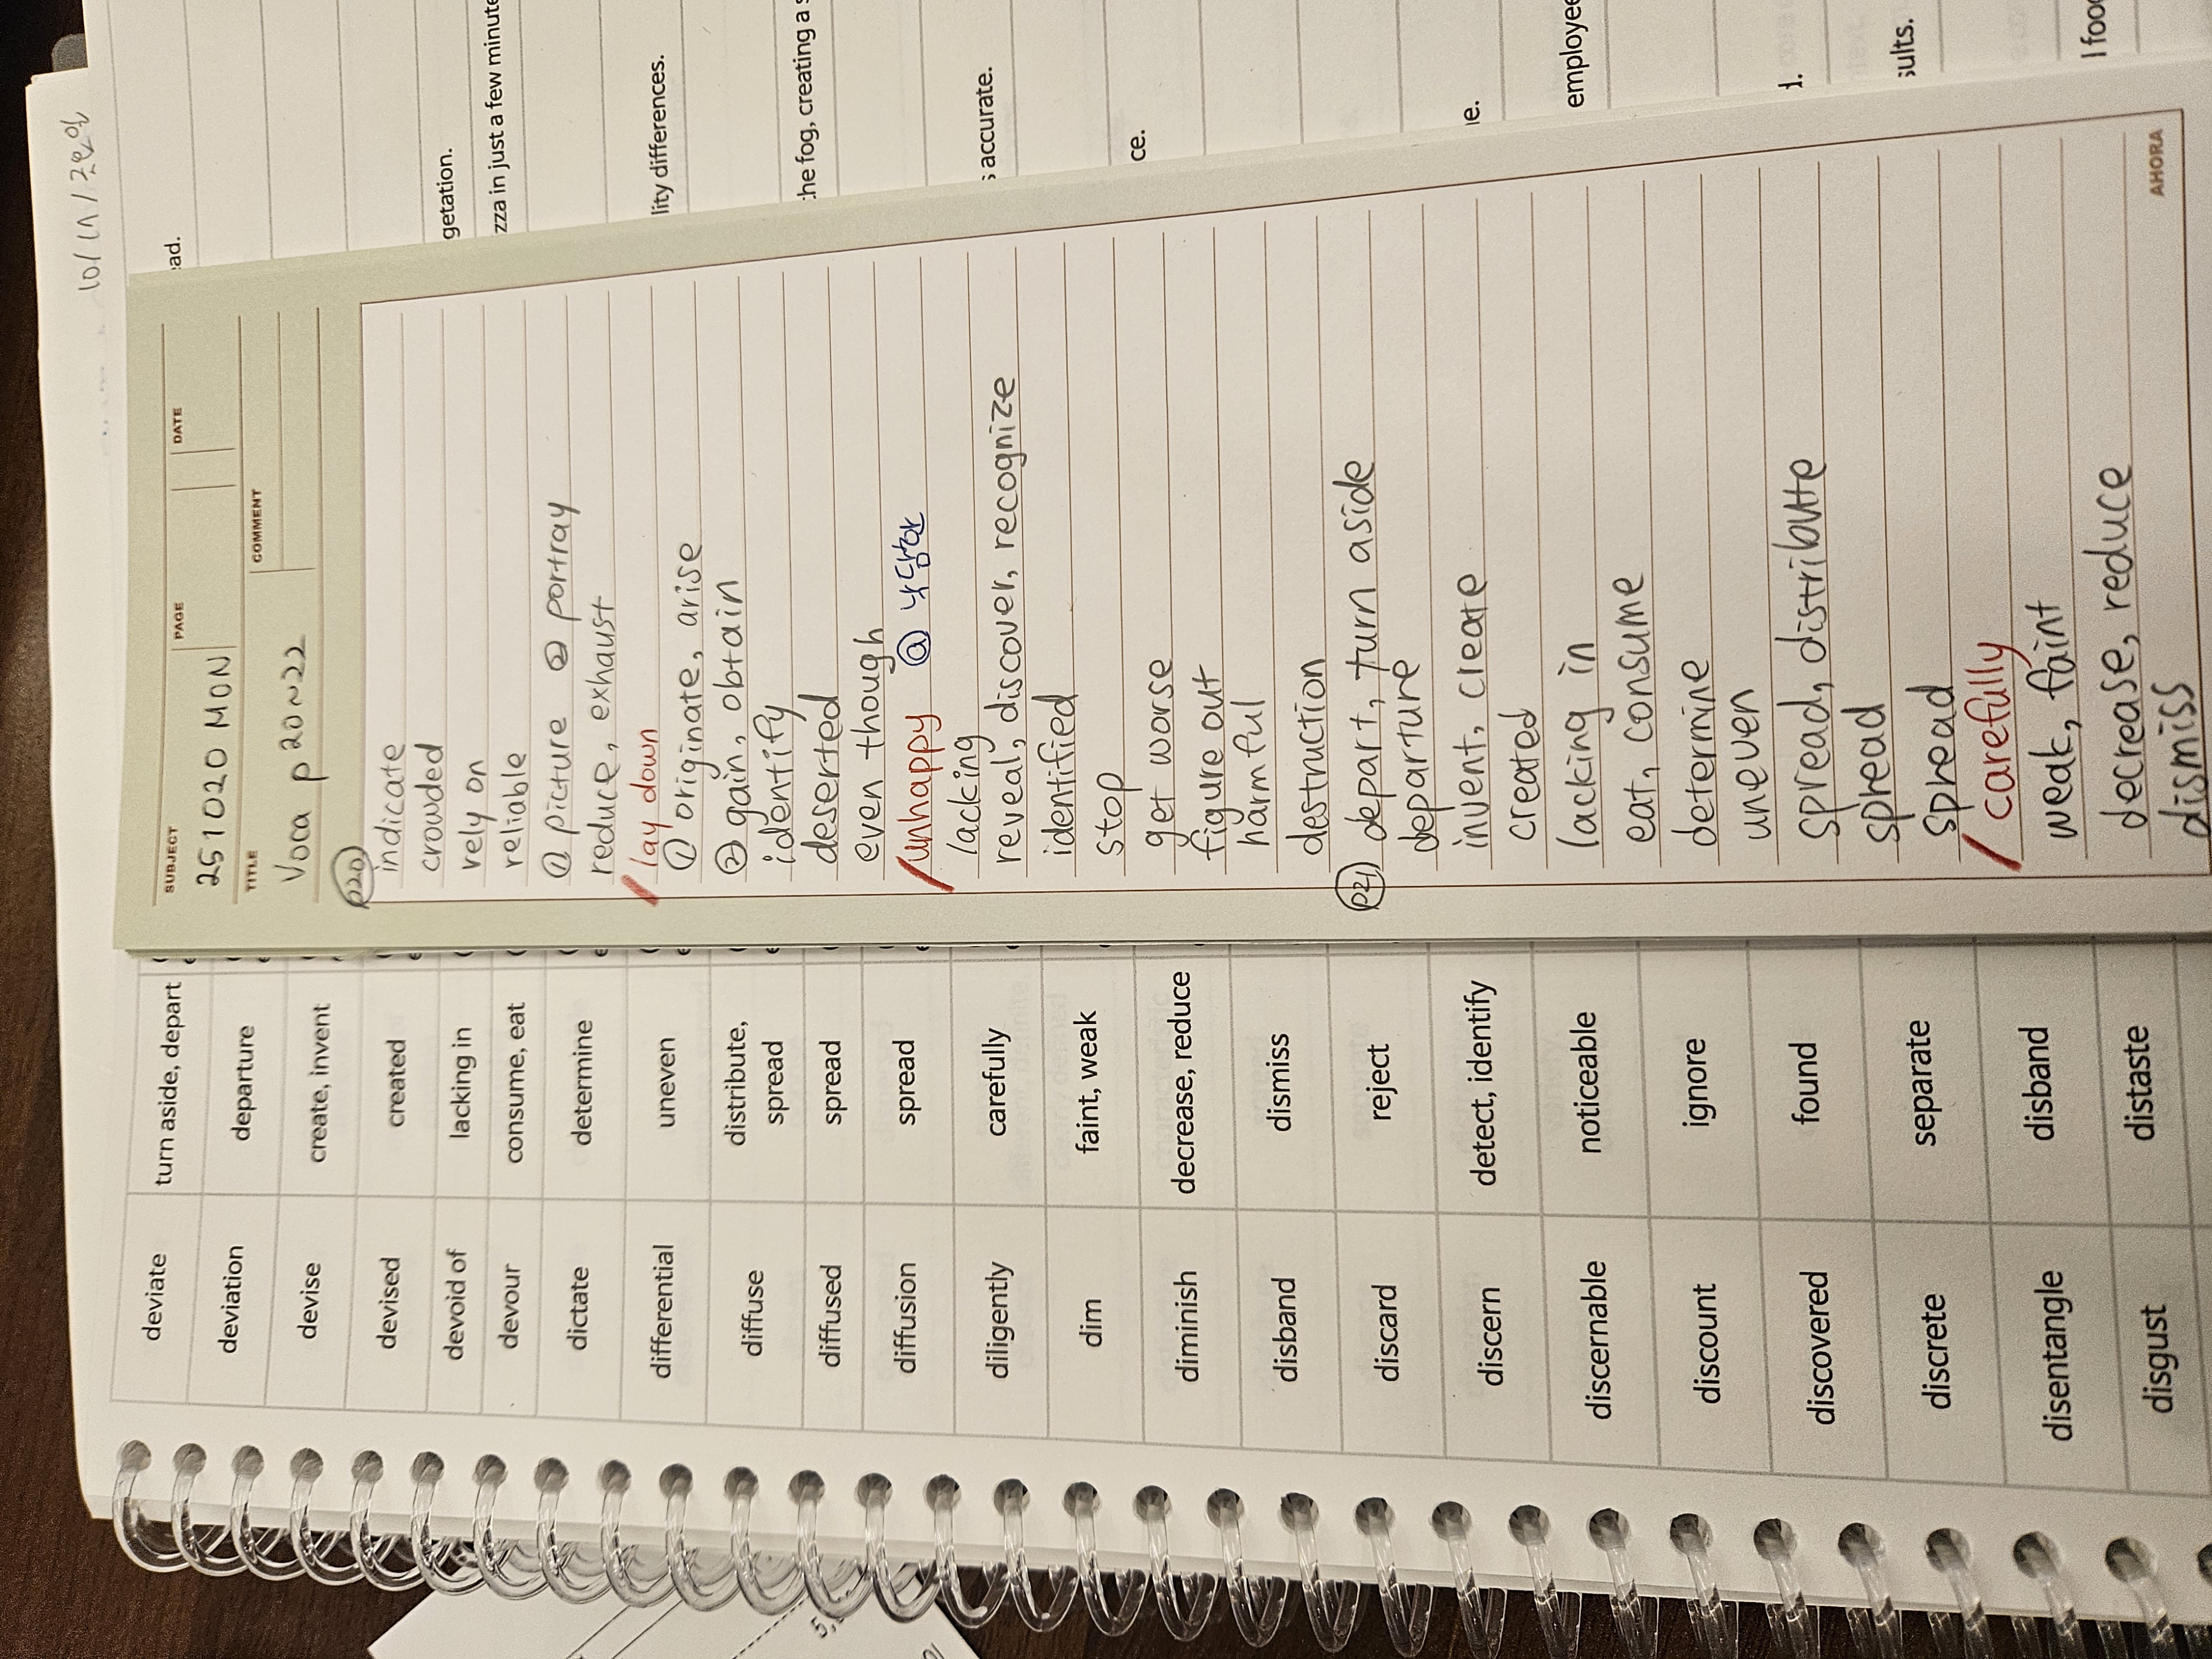 10/10/
ead.
getation.
zza in just a few minute
lity differences.
the fog, creating a s
s accurate.
ce.
ie.
employee
d.
sults.
l food
SUBJECT
PAGE
DATE
251020 MON
TITLE
COMMENT
Voca p20~22
P20
indicate
crowded
rely on
reliable
① picture ② portray
reduce, exhaust
lay down
① originate, arise
② gain, obtain
identify
deserted
even though
unhappy ⓐ 낙담한
lacking
reveal, discover, recognize
identified
stop
get worse
figure out
harmful
destruction
P21 depart, turn aside
departure
invent, create
created
lacking in
eat, consume
determine
uneven
spread, distribute
spread
spread
carefully
weak, faint
decrease, reduce
dismiss
AHORA
deviate turn aside, depart
deviation departure
devise create, invent
devised created
devoid of lacking in
devour consume, eat
dictate determine
differential uneven
diffuse distribute,
spread
diffused spread
diffusion spread
diligently carefully
dim faint, weak
diminish decrease, reduce
disband dismiss
discard reject
discern detect, identify
discernable noticeable
discount ignore
discovered found
discrete separate
disentangle disband
disgust distaste